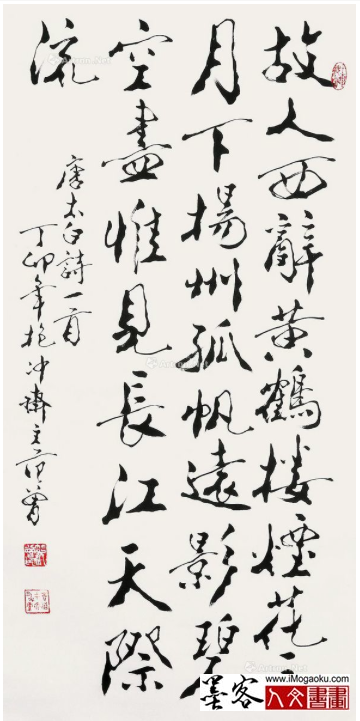 故人西辭黃鶴樓煙花三
月下揚州孤帆遠影碧
空盡惟見長江天際
流
唐太白詩一首
丁卯年抱沖齋主范曾
墨客 www.iMogaoku.com
人文書畫